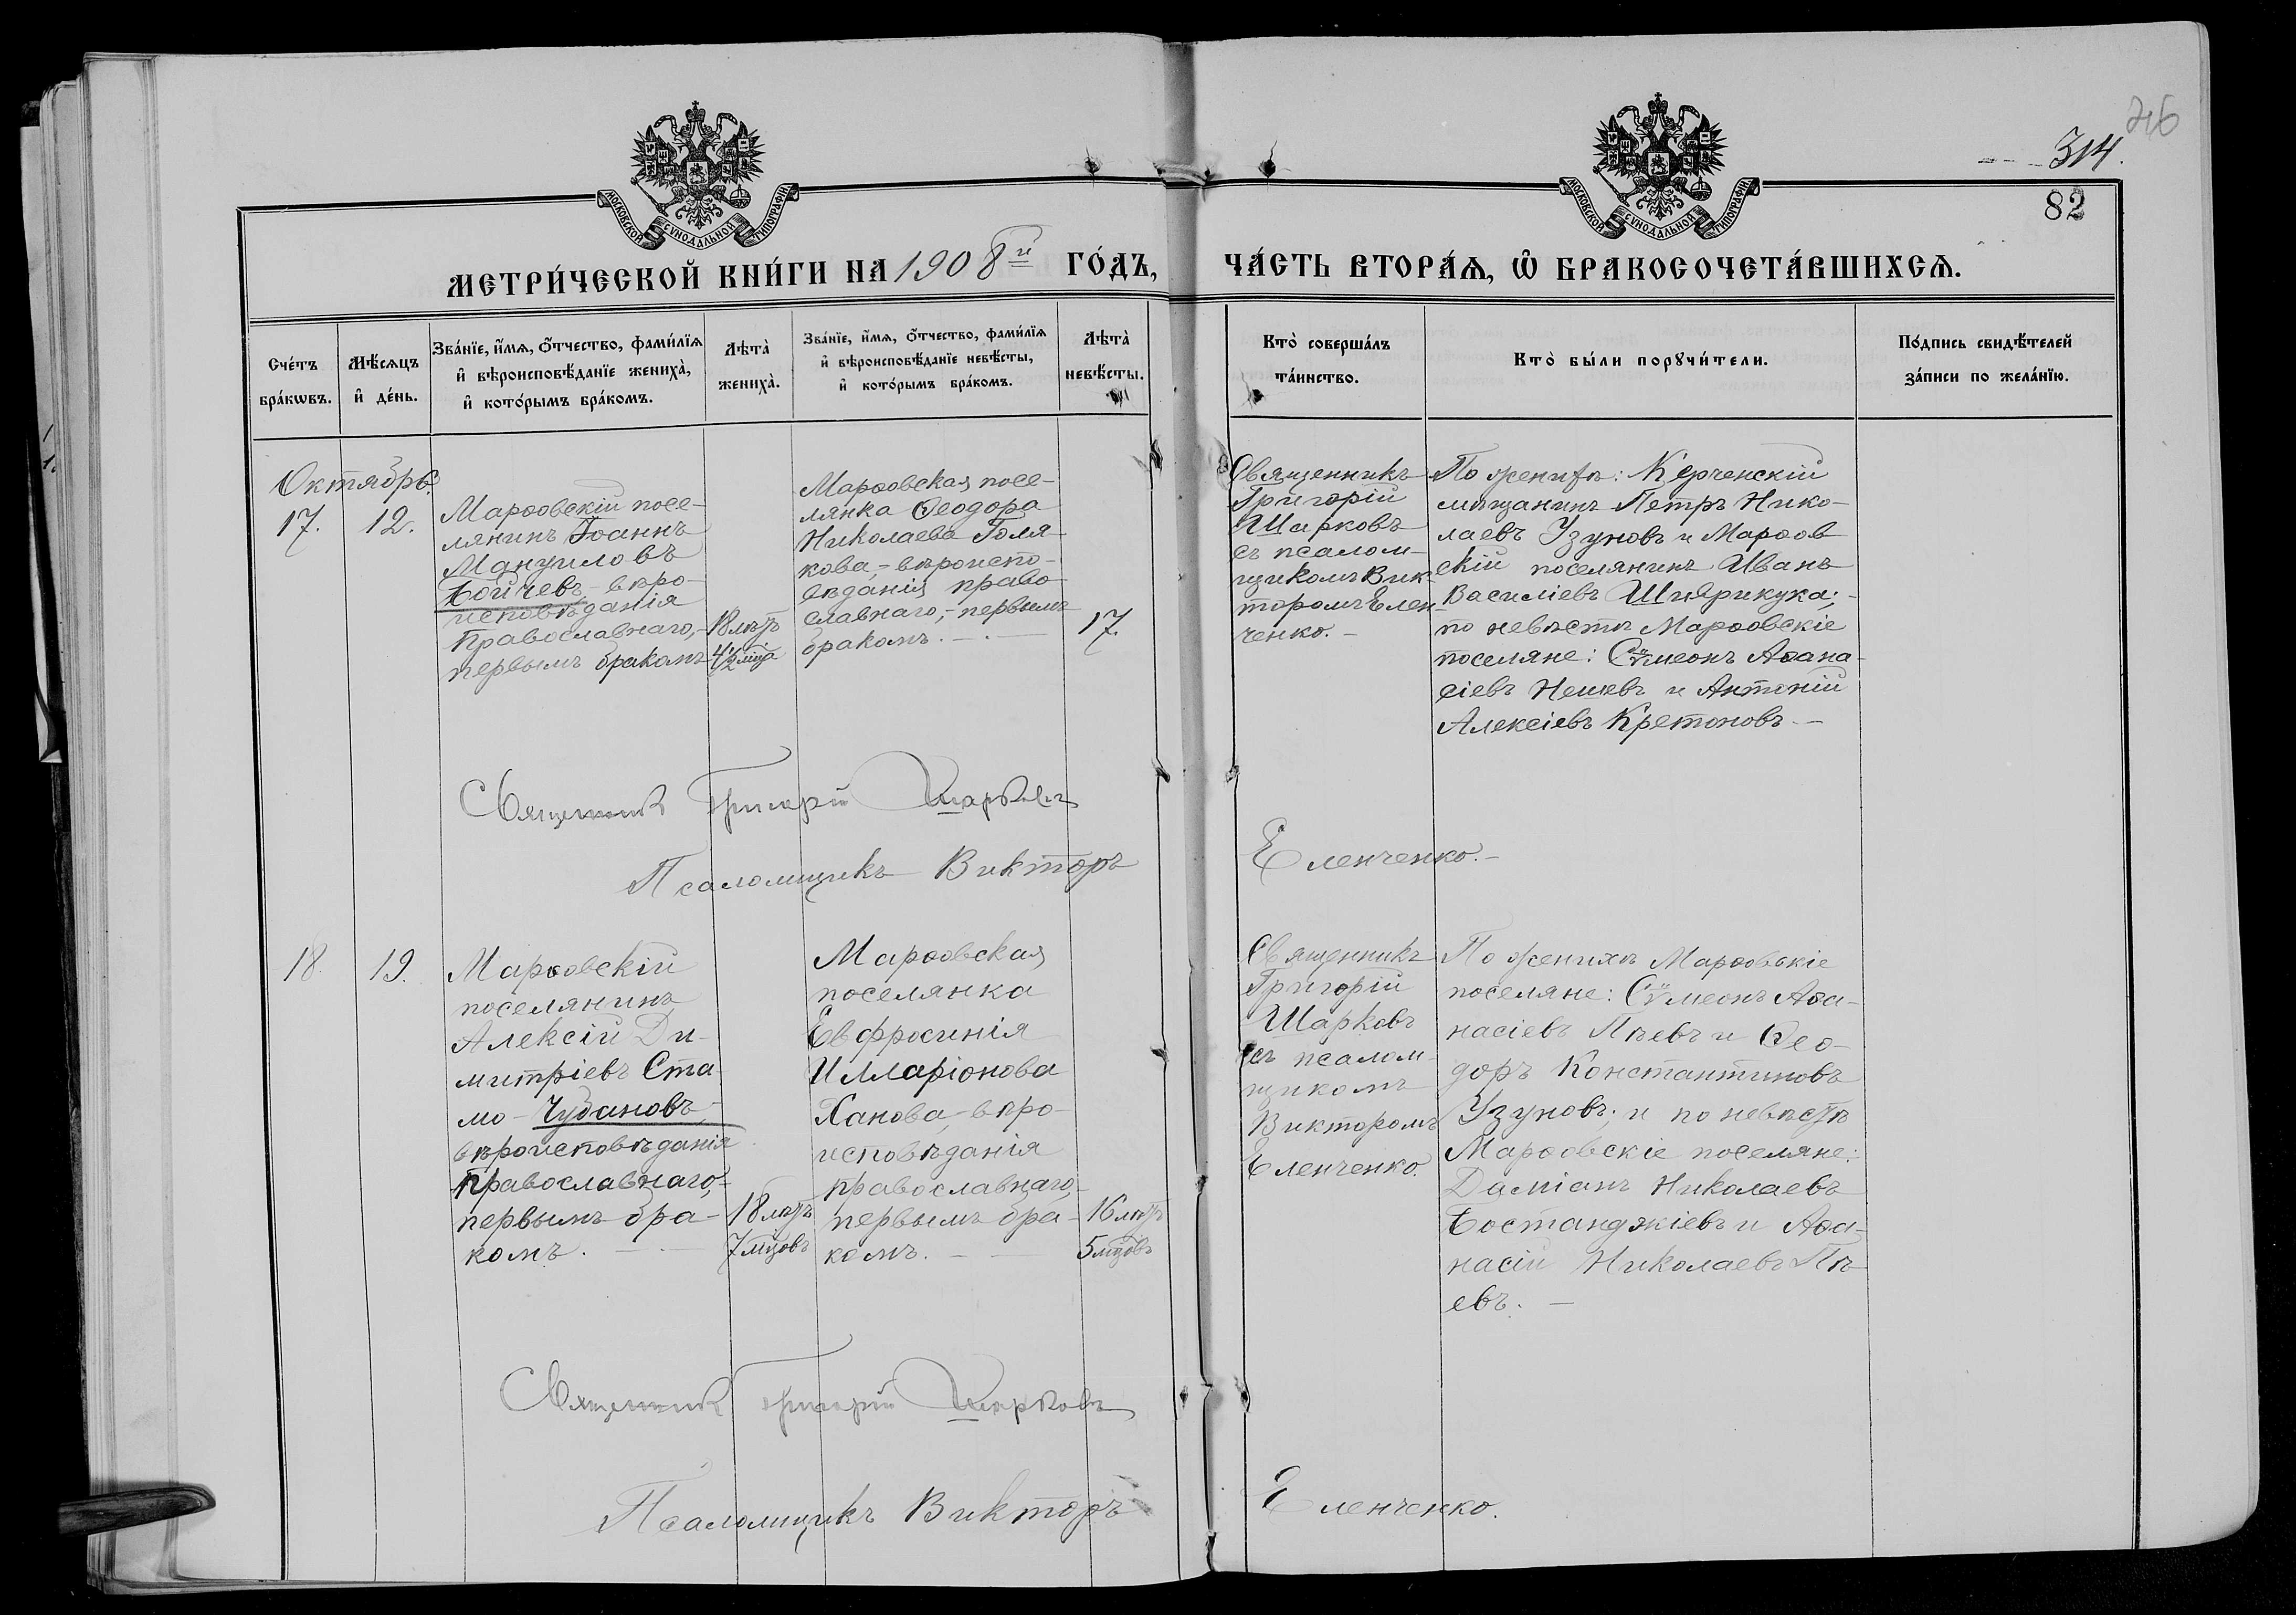 246
314.
82
МОСКОВСКОЙ СѴНОДАЛЬНОЙ ТИПОГРАФІИ
МОСКОВСКОЙ СѴНОДАЛЬНОЙ ТИПОГРАФІИ
МЕТРИ́ЧЕСКОЙ КНИ́ГИ НА 1908й ГО́ДЪ,
ЧА́СТЬ ВТОРА́Ѧ, Ѡ БРАКОСОЧЕТА́ВШИХСѦ.
Сче́тъ
бра́кѡвъ.
Мѣ́сѧцъ
и҆ де́нь.
Зва́нїе, и҆́мѧ, ѻ҆́тчество, фами́лїѧ
и҆ вѣроисповѣ́данїе жениха̀,
и҆ кото́рымъ бра́комъ.
Лѣта̀
жениха̀.
Зва́нїе, и҆́мѧ, ѻ҆́тчество, фами́лїѧ
и҆ вѣроисповѣ́данїе невѣ́сты,
и҆ кото́рымъ бра́комъ.
Лѣта̀
невѣ́сты.
Кто̀ соверша́лъ
та́инство.
Кто̀ бы́ли порꙋчи́тели.
По́дпись свидѣ́телей
за́писи по жела́нїю.
Октябрь.
17.
12.
Марѳовскій посе-
лянинъ Іоаннъ
Мануиловъ
Бойчевъ, вѣро-
исповѣданія
Православнаго,-
первымъ бракомъ
18 лѣтъ
4½ мца
Марѳовская посе-
лянка Ѳеодора
Николаева Голя-
кова,- вѣроиспо-
вѣданія право-
славнаго,- первымъ
бракомъ. -
17.
Священникъ
Григорій
Шарковъ
съ псалом-
щикомъ Вик-
торомъ Елен-
ченко. -
По женихѣ: Керченскій
мѣщанинъ Петръ Нико-
лаевъ Узуновъ и Марѳов
скій поселянинъ Иванъ
Василіевъ Шиярикука; -
по невѣстѣ Марѳовскіе
поселяне: Сѵмеонъ Аѳана-
сіевъ Пѣевъ и Антоній
Алексіевъ Кретоновъ. -
Священникъ Григорій Шарковъ
Псаломщикъ Викторъ Еленченко. -
18.
19.
Марѳовскій
поселянинъ
Алексій Ди-
митріевъ Ста-
мо-Чубановъ,-
вѣроисповѣданія
Православнаго,-
первымъ бра-
комъ. -
18 лѣтъ
7 мцовъ
Марѳовская
поселянка
Евфросинія
Илларіонова
Ханова,- вѣро-
исповѣданія
православнаго,-
первымъ бра-
комъ. -
16 лѣтъ
5 мцовъ
Священникъ
Григорій
Шарковъ
съ псалом-
щикомъ
Викторомъ
Еленченко.
По женихѣ Марѳовскіе
поселяне: Сѵмеонъ Аѳа-
насіевъ Пѣевъ и Ѳео-
доръ Константиновъ
Узуновъ; и по невѣстѣ
Марѳовскіе поселяне:
Даміанъ Николаевъ
Бостанджіевъ и Аѳа-
насій Николаевъ Пѣ-
евъ. -
Священникъ Григорій Шарковъ
Псаломщикъ Викторъ Еленченко.